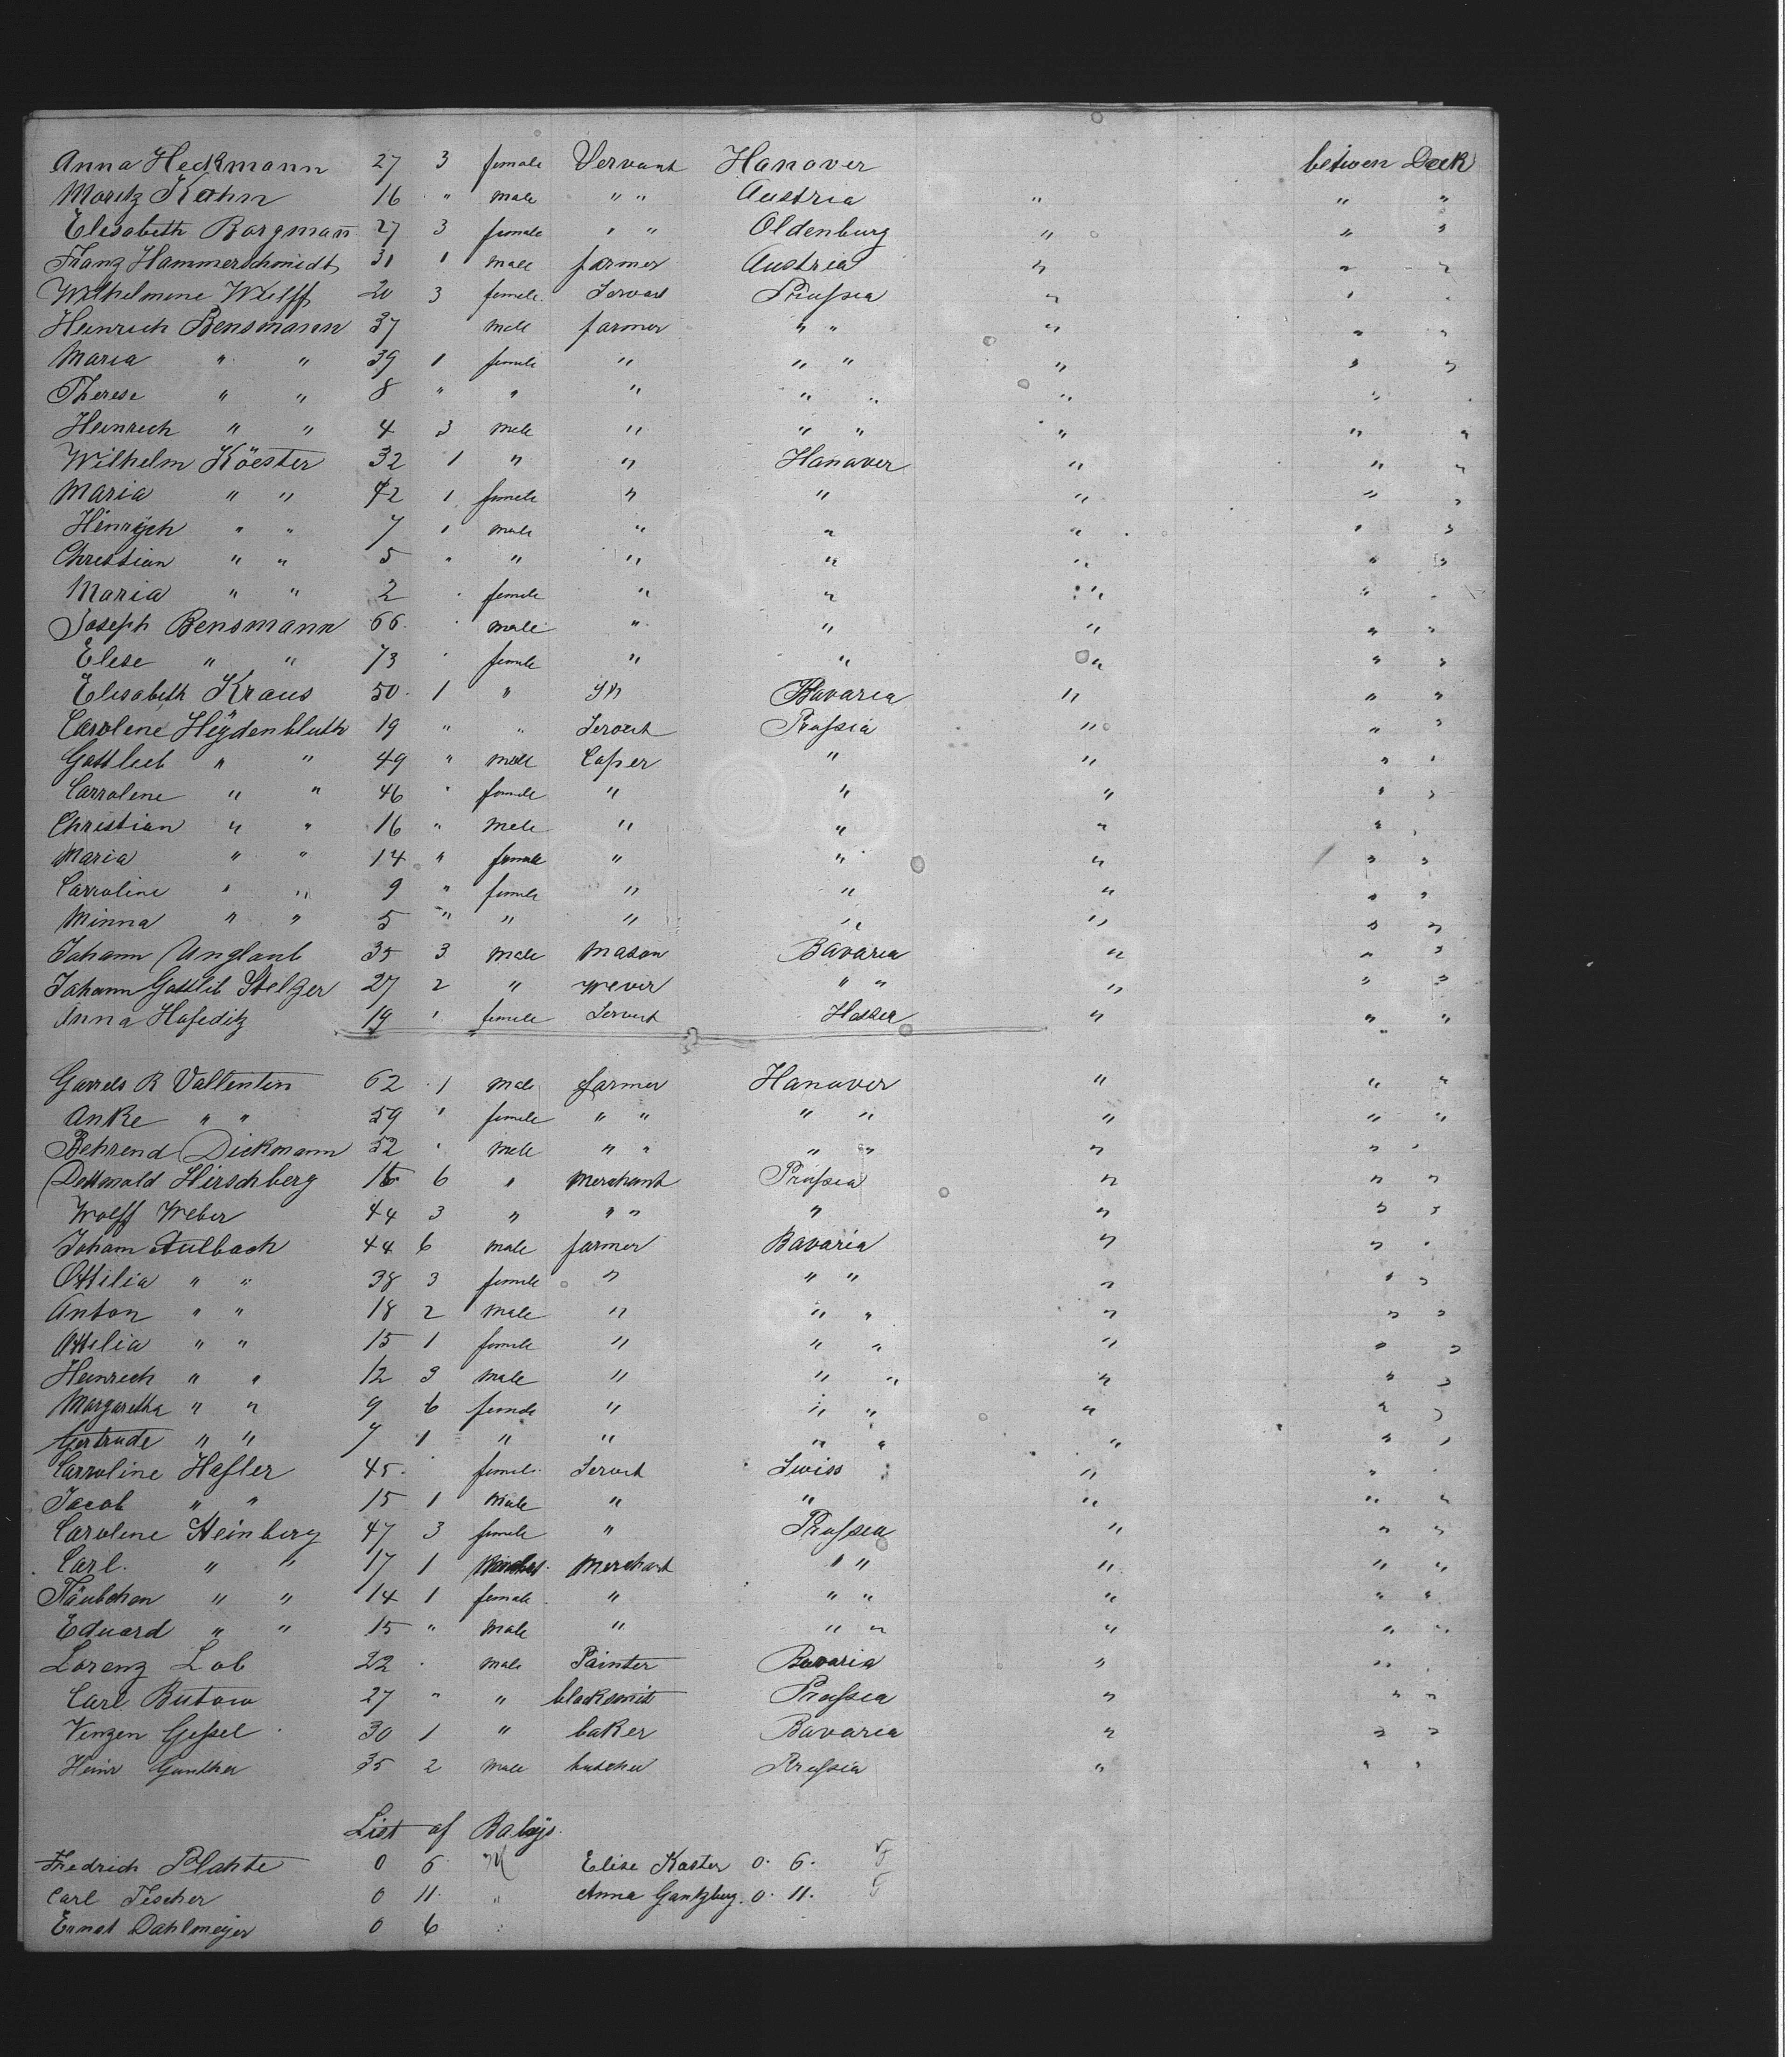 Anna Heckmann 27 3 female Servant Hanover betwen Deck
Moritz Kahn 16 " male " " Austria " " "
Elisabeth Borgmann 27 3 female " " Oldenburg " " "
Franz Hammerschmidt 31 1 male farmer Austria " " "
Wilhelmine Wulff 20 3 female Servant Prussia " " "
Heinrich Bensmann 37 male farmer " " " " "
Maria " " 39 1 female " " " " " "
Therese " " 8 " " " " " " " "
Heinrich " " 4 3 male " " " " " "
Wilhelm Köester 32 1 " " Hanaver " " "
Maria " " 42 1 female " " " " "
Hinrych " " 7 1 male " " " " "
Christian " " 5 " " " " " " "
Maria " " 2 " female " " " " "
Joseph Bensmann 66 " male " " " " "
Elise " " 73 " female " " " " "
Elisabeth Kraus 50 1 " Bavaria " " "
Carolene Heydenbluth 19 " " Servant Prussia " " "
Gottlieb " " 49 " male " " " "
Carrolene " " 46 " female " " " " "
Christian " " 16 " male " " " " "
Maria " " 14 " female " " " " "
Carroline " " 9 " female " " " " "
Minna " " 5 " " " " " " "
Johann Unglaub 35 3 male Mason Bavaria " " "
Johann Gottlib Stelzer 27 2 " Wever " " " " "
Anna Hassditz 19 " female Servant Hessen " " "
Garrels R Vallentin 62 1 male farmer Hanover " " "
Anke " " 59 " female " " " " " " "
Behrend Dickmann 52 " male " " " " " " "
Hirschberg 16 6 " Merchant Prussia " " "
Wolff Weber 44 3 " " " " " " "
Joham Aulbach 44 6 male farmer Bavaria " " "
Ottilia " " 38 3 female " " " " " "
Anton " " 18 2 male " " " " " "
Ottilia " " 15 1 female " " " " " "
Heinrich " " 12 3 male " " " " " "
Margaretha " " 9 6 female " " " " " "
Gertrude " " 7 1 " " " " " " "
Carroline Hassler 45 female Servant Swiss " " "
Jacob " " 15 1 male " " " " "
Carolene Steinberg 47 3 female " Prussia " " "
Carl " " 17 1 Merchant " " " " "
Täubchen " " 14 1 female " " " " " "
Eduard " " 15 " male " " " " " "
Lorenz Lob 22 " male Painter Bavaria " " "
Carl Butow 27 " " blacksmit Prussia " " "
Venzen Gessel 30 1 " baker Bavaria " " "
Heinr Gunther 35 2 male butcher Prussia " " "
List of Babys
Fredrich Plahte 0 6 M Elise Kaster 0 6 F
Carl Fischer 0 11 " Anna Gantzberg 0 11 F
Ernst Dahlmeijer 0 6 "